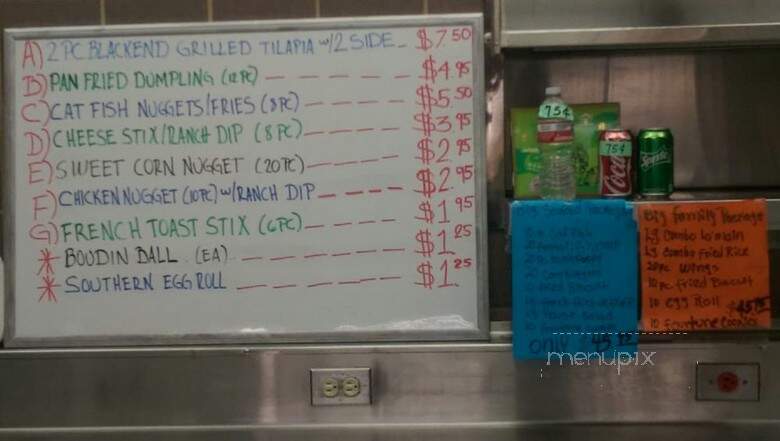 A) 2 PC BLACKEND GRILLED TILAPIA w/2 SIDE_ $7.50
B) PAN FRIED DUMPLING (12 PC) $4.95
C) CAT FISH NUGGETS/FRIES (8 PC) $5.50
D) CHEESE STIX/RANCH DIP (8 PC) $3.95
E) SWEET CORN NUGGET (20 PC) $2.95
F) CHICKEN NUGGET (10 PC) w/RANCH DIP $2.95
G) FRENCH TOAST STIX (6 PC) $1.95
* BOUDIN BALL (EA) $1.25
* SOUTHERN EGG ROLL $1.25
75¢
75¢
Coca
Sprite
Big Family Package
Lg Combo lo mein
Lg Combo Fried Rice
20 PC WINGS
10 PC Fried Biscuit
10 EGG Roll $45.75
10 Fourtune Cookies
Big Seafood Package
Only $45
menupix